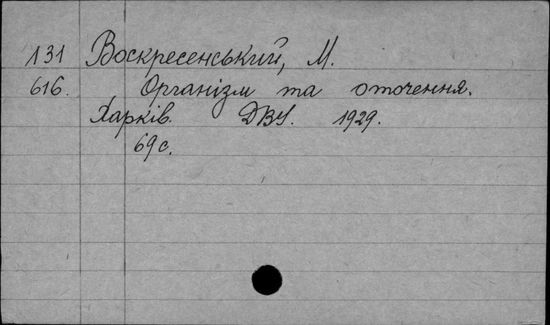 131 Воскресенський, М.
616. Організм та оточення.
Харків. ДВУ. 1929.
69 с.